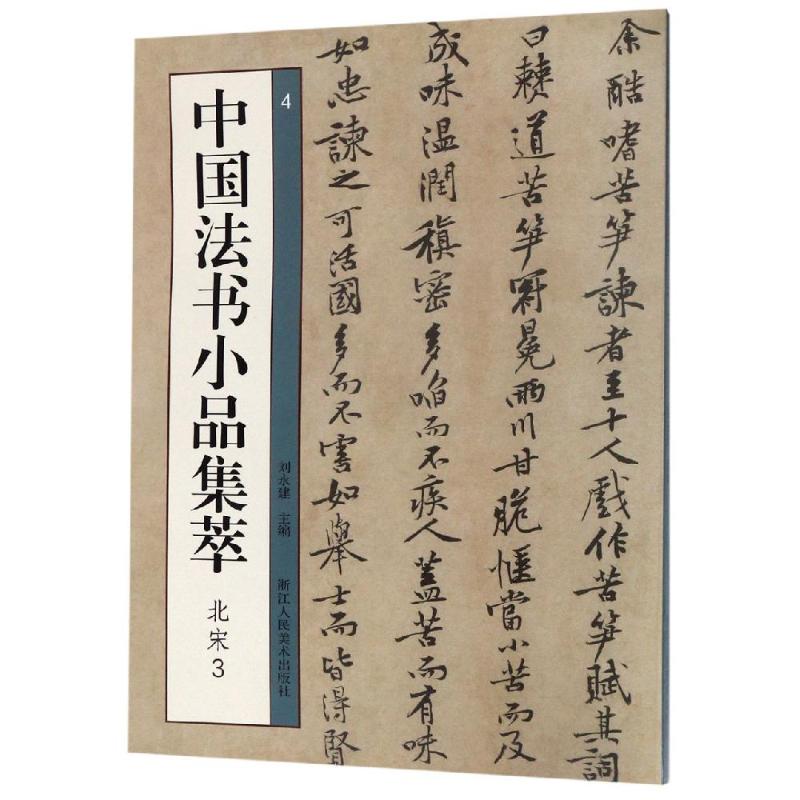 4
中国法书小品集萃
北宋3
刘永建 主编
浙江人民美术出版社
余酷嗜苦笋諫者至十人戲作苦笋賦其詞
曰僰道苦笋冠冕兩川甘脆愜當小苦而及
成味温潤稹密多啗而不疾人蓋苦而有味
如忠諫之可活國多而不害如舉士而皆得賢